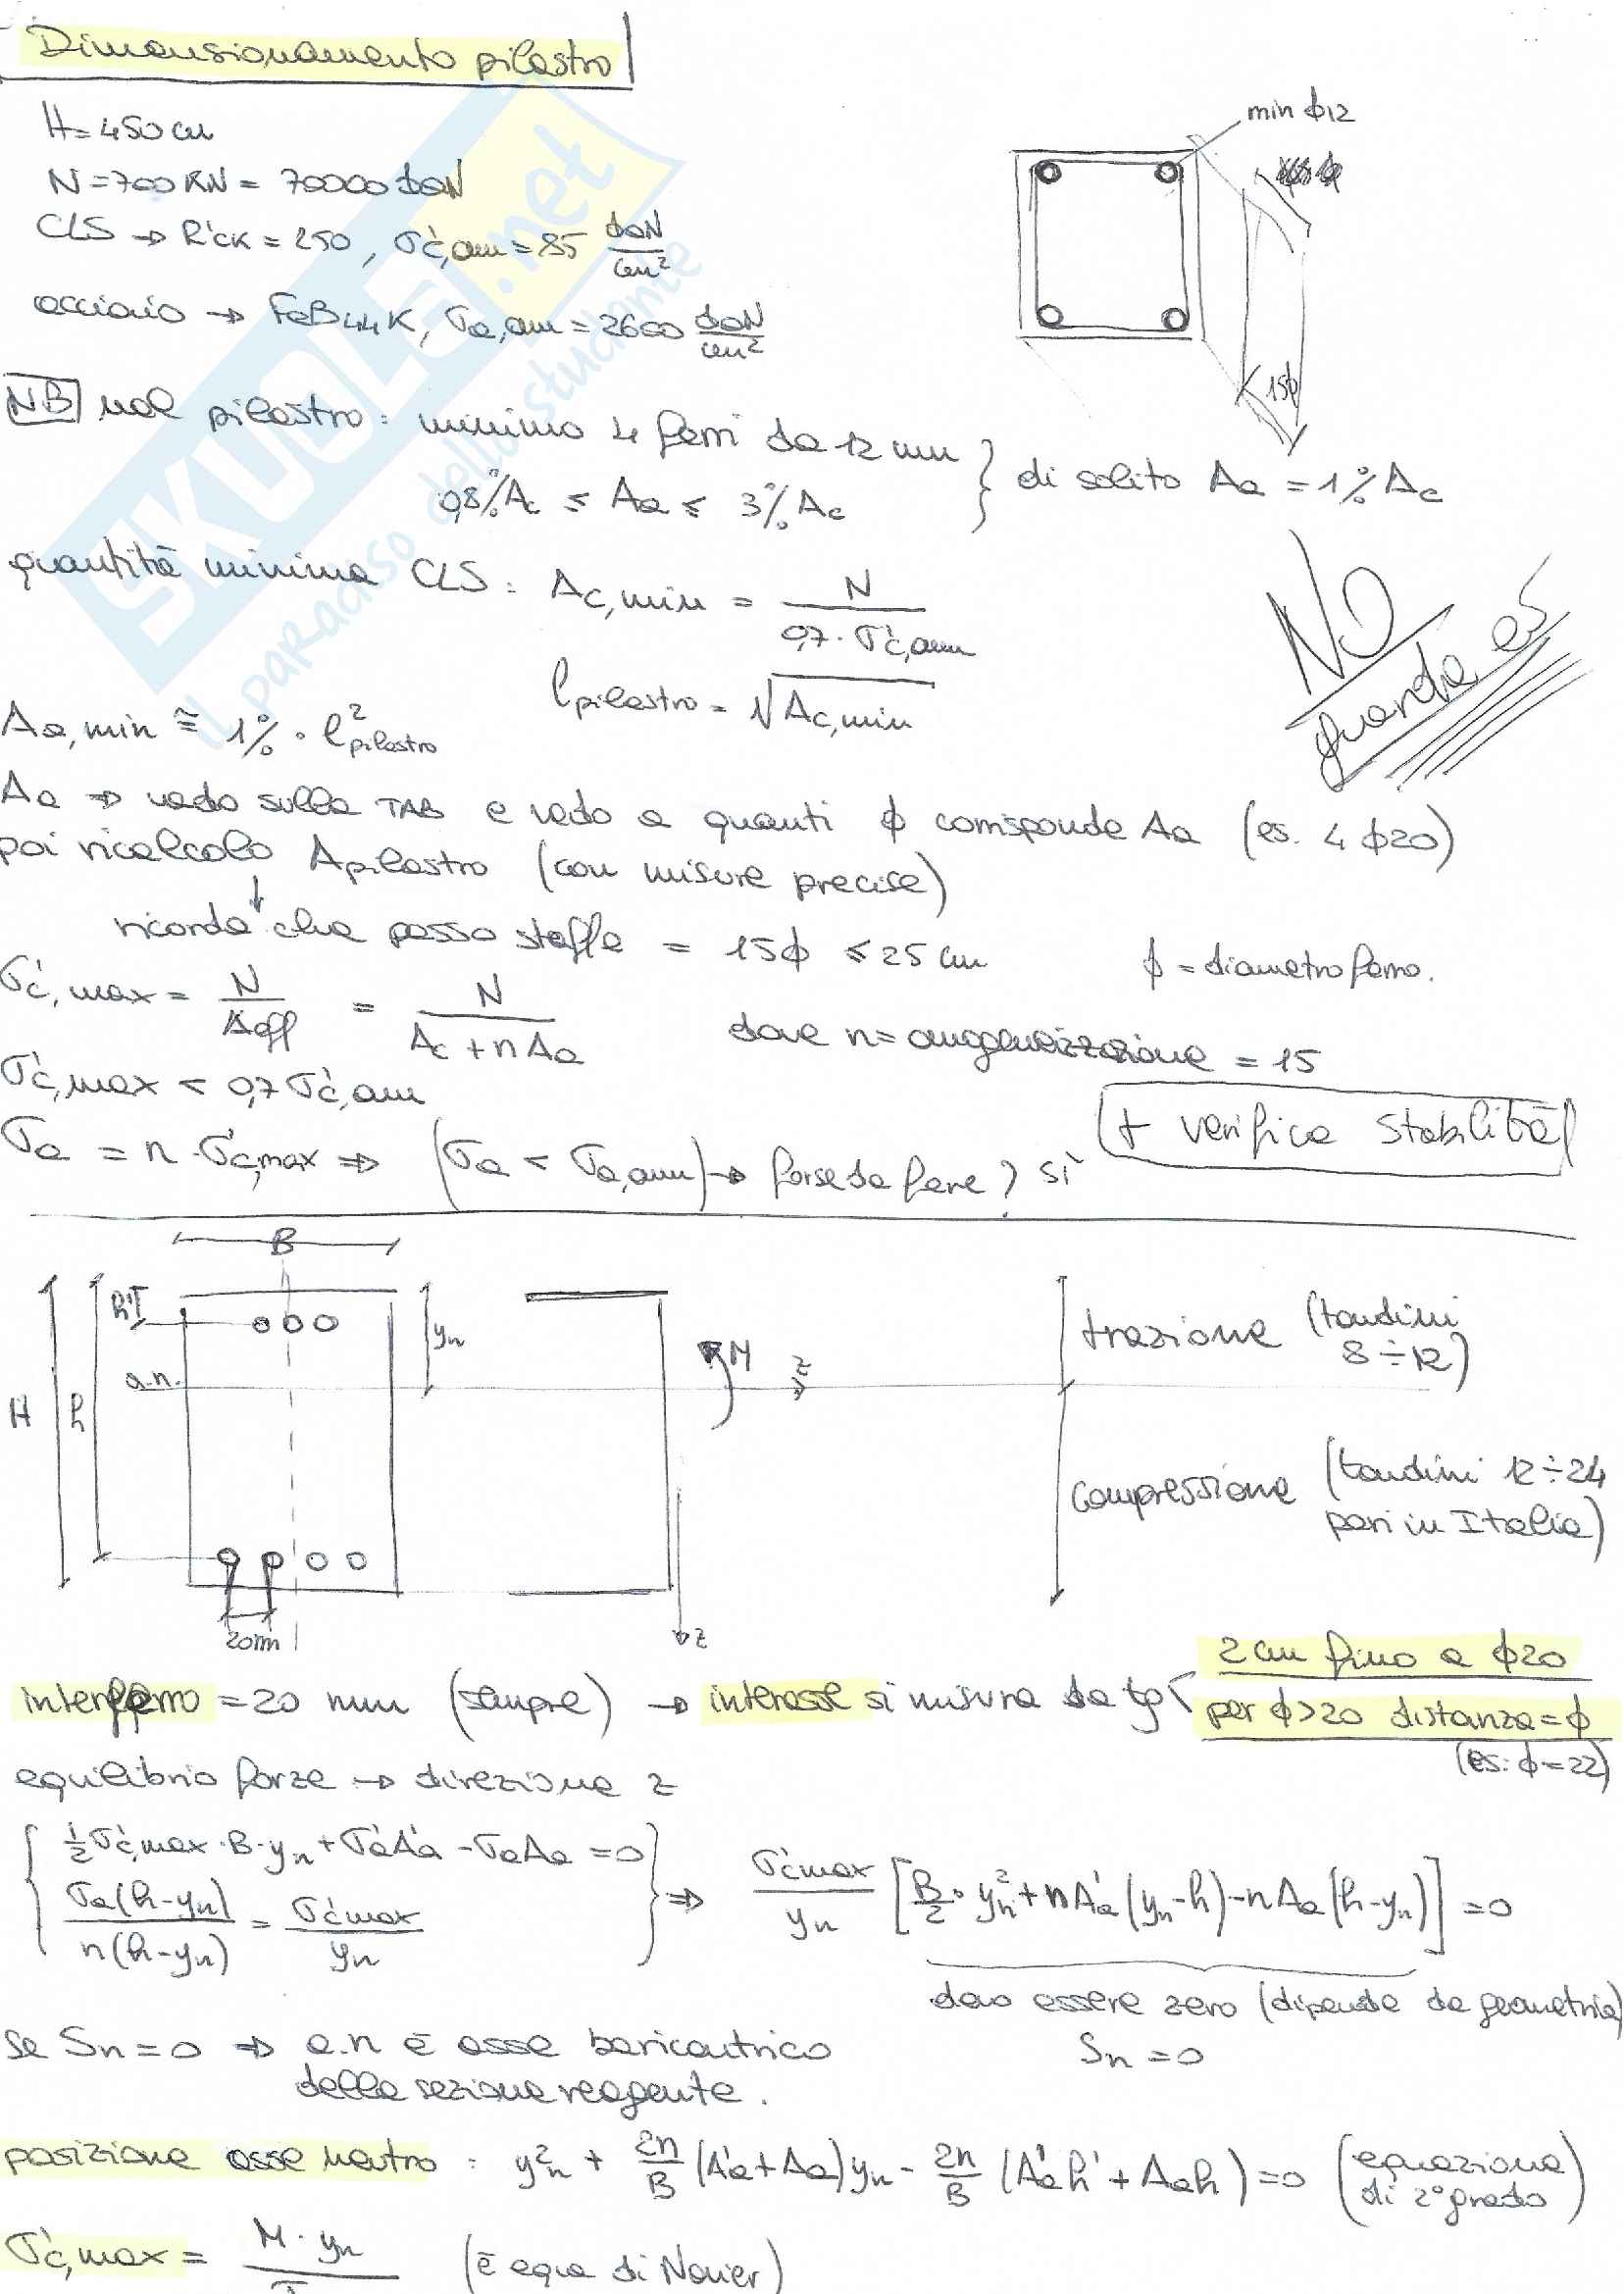 Dimensionamento pilastro
H=450cm
min ϕ12
N=700KN= 70000 daN
CLS → R'ck = 250, σ'c,am = 85 daN/cm²
acciaio → FeB44K, σa,am = 2600 daN/cm²
15ϕ
NB nel pilastro: minimo 4 ferri da 12 mm
0,8%Ac ≤ Aa ≤ 3%Ac } di solito Aa = 1% Ac
quantità minima CLS: Ac,min = N / 0,7·σ'c,am
NO
guarda es
lpilastro = √Ac,min
Aa,min ≅ 1% · l²pilastro
Aa ⇒ vado sulla TAB e vedo a quanti ϕ corrisponde Aa (es. 4 ϕ20)
poi ricalcolo Apilastro (con misure precise)
↓
ricorda che passo staffe = 15ϕ ≤ 25 cm
ϕ = diametro ferro.
σ'c,max = N/Aeff = N / Ac + nAa
dove n= omogeneizzazione = 15
σ'c,max < 0,7 σ'c,am
+ verifica stabilità
σa = n · σ'c,max ⇒ (σa < σa,am) → forse da fare? sì
B
h'
yn
a.n.
H
h
M
z
trazione (tondini 8÷12)
compressione (tondini 12÷24 pari in Italia)
20mm
z
2 cm fino a ϕ20
interferro = 20 mm (sempre) → interasse si misura da
per ϕ>20 distanza=ϕ
(es: ϕ=22)
equilibrio forze → direzione z
{ ½σ'c,max·B·yn + σ'aA'a - σaAa = 0
σa(h-yn) / n(h-yn) = σ'cmax / yn } ⇒ σ'cmax / yn [B/2 · yn² + nA'a (yn-h) - nAa (h-yn)] = 0
devo essere zero (dipende da geometria)
Sn = 0
se Sn = 0 ⇒ a.n è asse baricentrico
della sezione reagente.
posizione asse neutro: yn² + 2n/B (A'a+Aa)yn - 2n/B (A'ah' + Aah) = 0 (equazione di 2° grado)
σ'c,max = M · yn (è equa di Navier)
SKUOLA.net
il paradiso dello studente